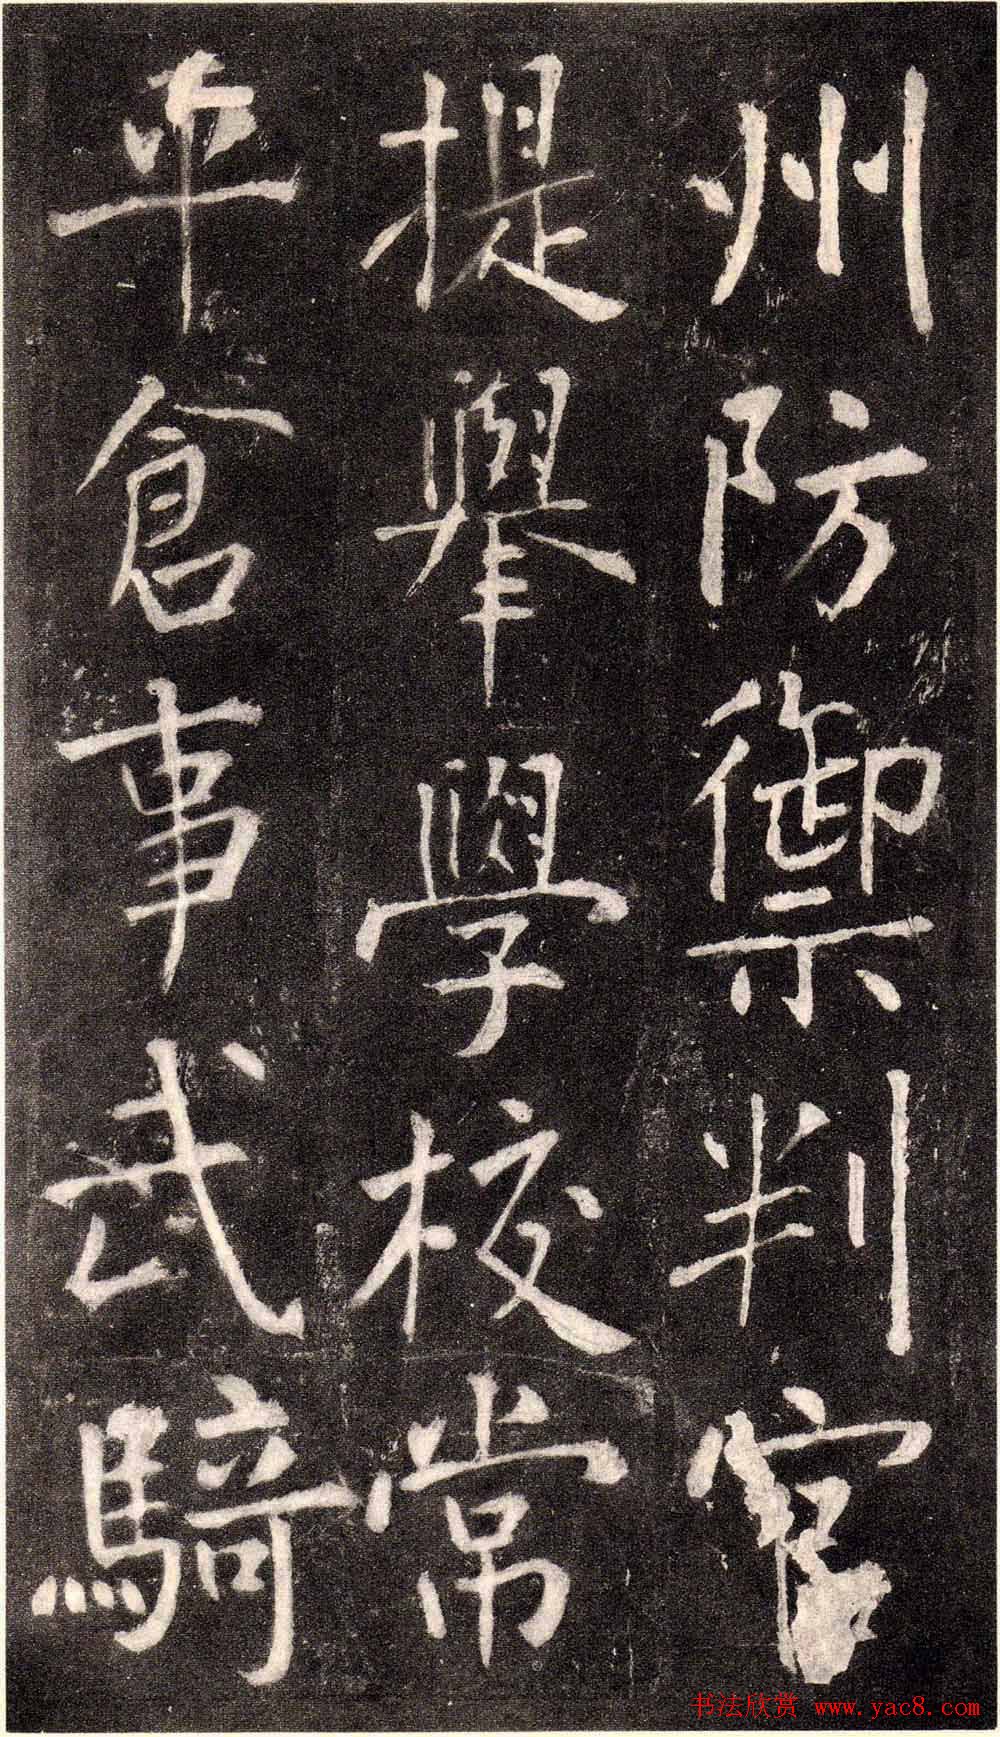 州防禦判官
提舉學校常
平倉事武騎
书法欣赏 www.yac8.com